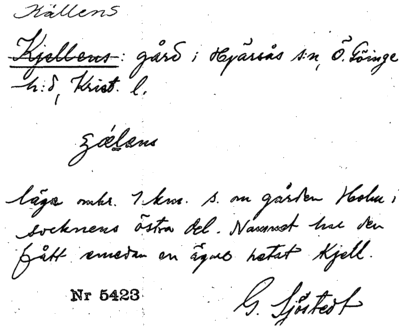 Källens
Kjellens: gård i Hjärsås sn, Ö. Göinge
h:d, Krist. l.
läge omkr. 1 km. s. om gården Holm i
socknens östra del. Namnet har den
fått emedan en ägare hetat Kjell.
Nr 5423
G. Sjöstedt